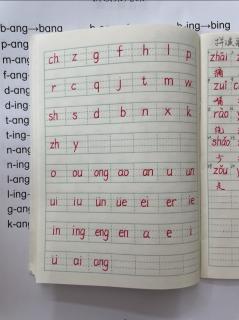 b-ang→bang
ing→bing
p-ang
m-ang
f-ang
d-ang
d-ing
t-ing
n-ang
n-ing
l-ing
g-ang
k-ang
ch z g f h l p
r c q j t m w
sh s d b n x k
zh y
o ou ong ao an u un
ui iu ün üe ei er ie
in ing eng en a e i
ü ai ang
zhāi
摘
rào
sháo
zǒu